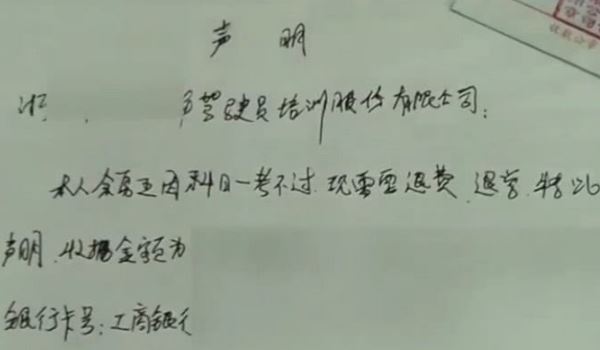 声 明
驾驶员培训股份有限公司:
本人余 因科目一考不过.现需要退费、退学.特此
声明.收据金额为
银行卡号:工商银行